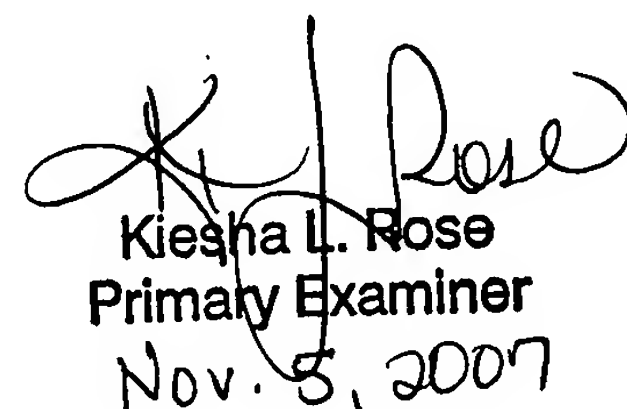 Rose
Kiesha L. Rose
Primary Examiner
Nov. 5, 2007